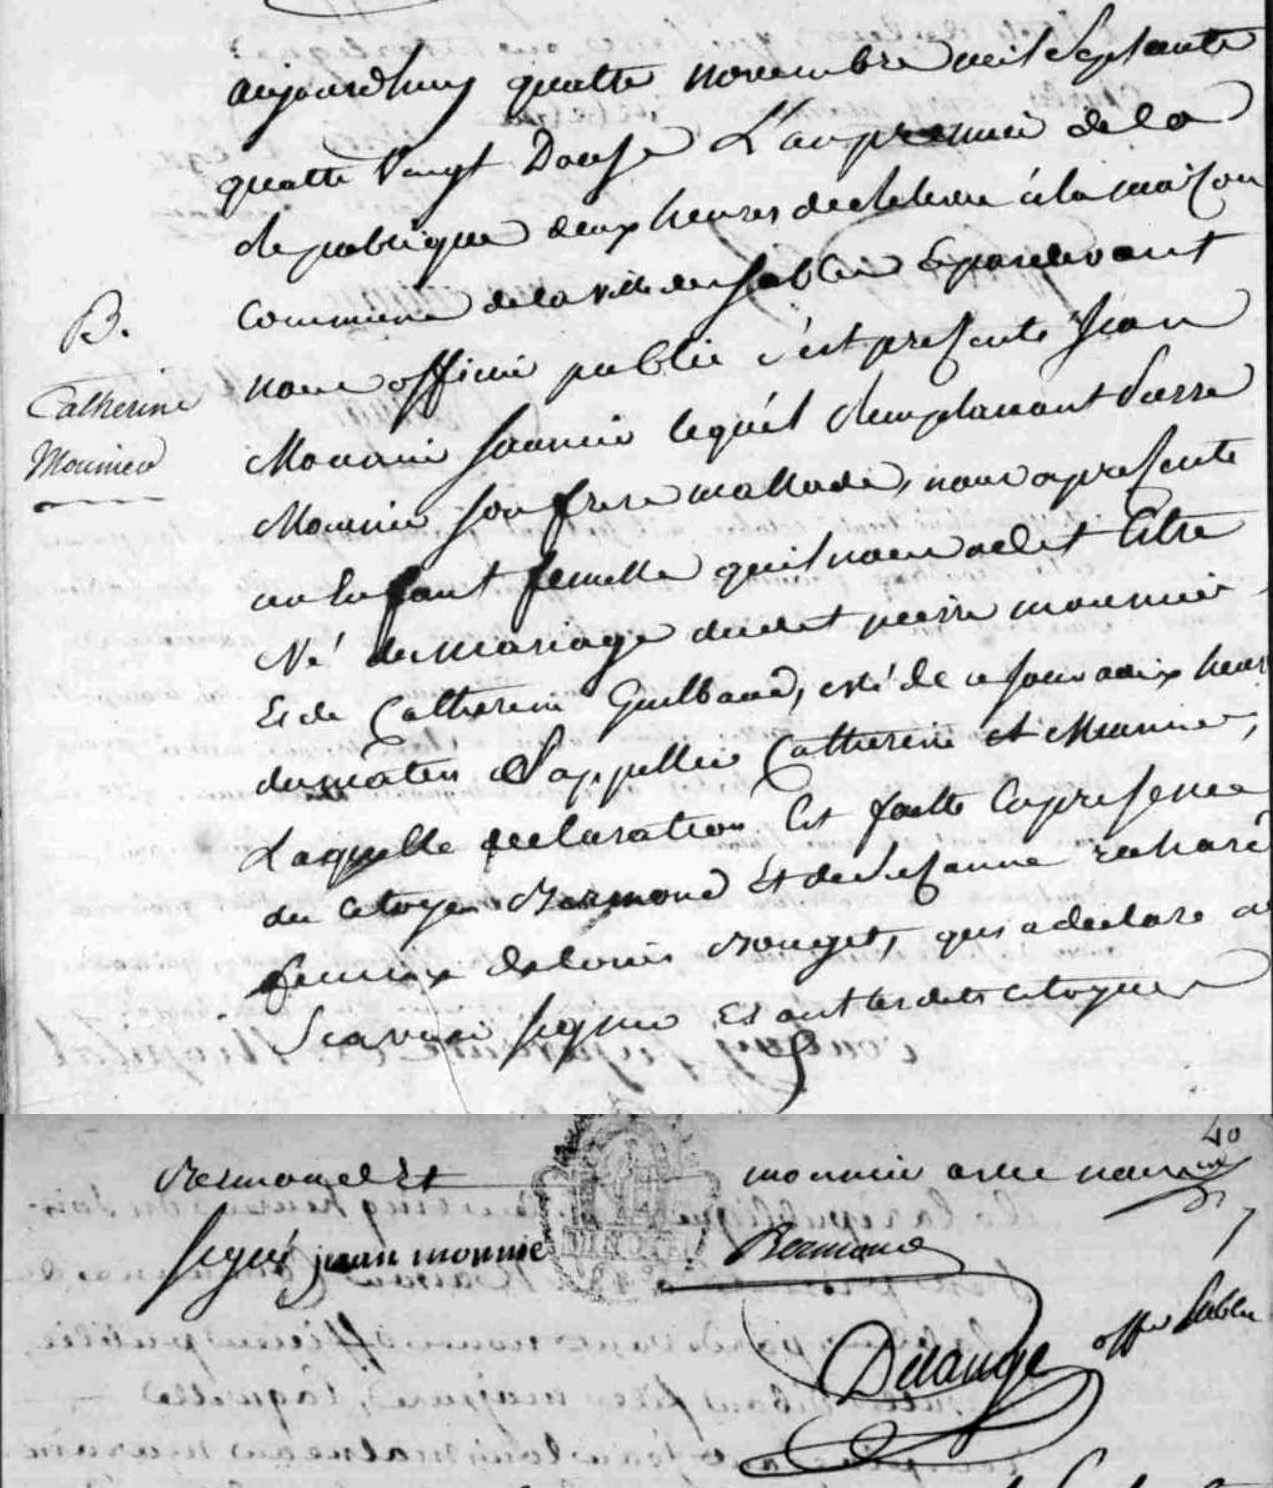 aujourdhuy quattre novembre mil septante
quattre Vingt Douse L'an premier de la
Republique deux heures de relevée à la maison
Commune de la ville de Sables Et pardevant
nous officier public s'est presenté Jean
Mounier Saunier lequel remplassant Pierre
Mounier son frere mallade, nous a presenté
un Enfant femelle qu'il nous a dit Estre
Né du mariage dudit pierre mounier
Et de Catherine Guilbaud, été de ce jour a dix heures
du matin S'appeller Catherine et Mounier,
Laquelle declaration Est faitte En presence
du Citoyen Bermond Et de Susanne
femme de Louis Rouget, qui a declaré a
Scavoir signer Et ont lesdits citoyens
B.
Catherine
Mounier
40
Bermond Et mounier avec nous
signé jean mounie Bermond
Delange off. Public